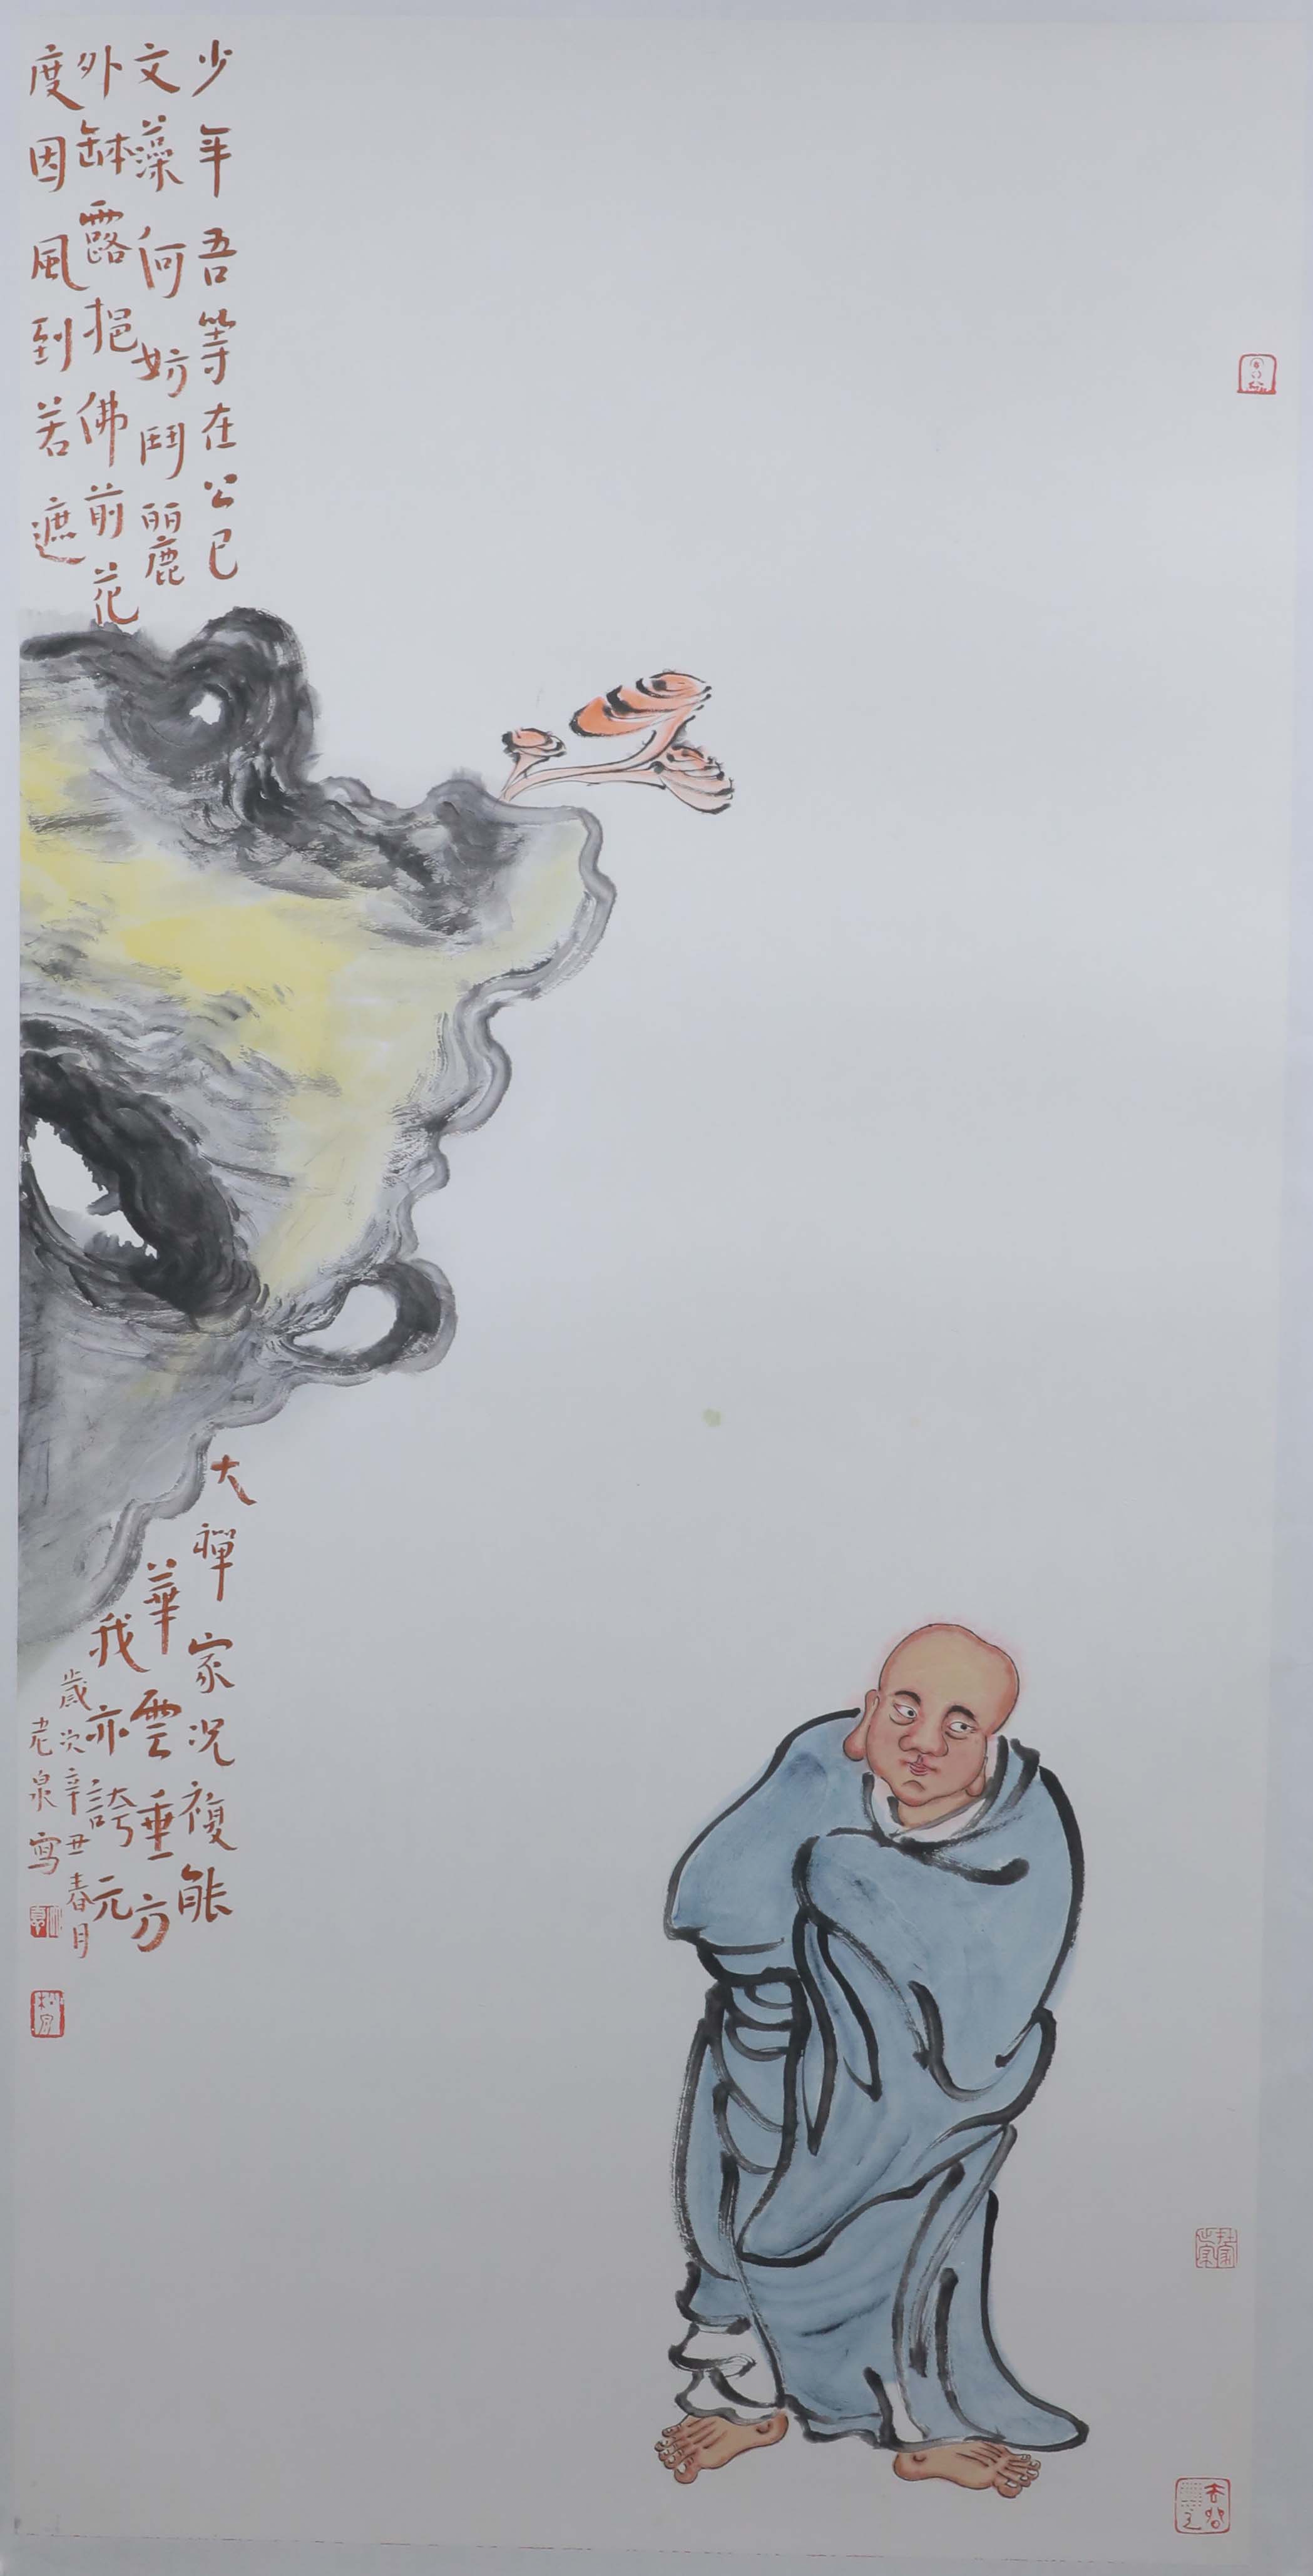 少年吾等在公已
大禪家況複能
文藻何妨鬥麗
華雲垂方
外缽露挹佛前花
我亦誇元
度因風到若遮
歲次辛丑春月
老泉寫